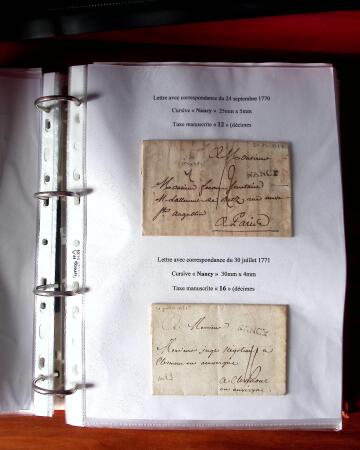 Lettre avec correspondance du 24 septembre 1770
Cursive « Nancy » 25mm x 5mm
Taxe manuscrite « 12 » (décimes
A Monsieur
NANCY
Monsieur
a Paris
Lettre avec correspondance du 30 juillet 1771
Cursive « Nancy » 30mm x 4mm
Taxe manuscrite « 16 » (décimes
A Monsieur
NANCY
Monsieur juge Négotiant a
Clermont en auvergne
a Clermont
en auvergne